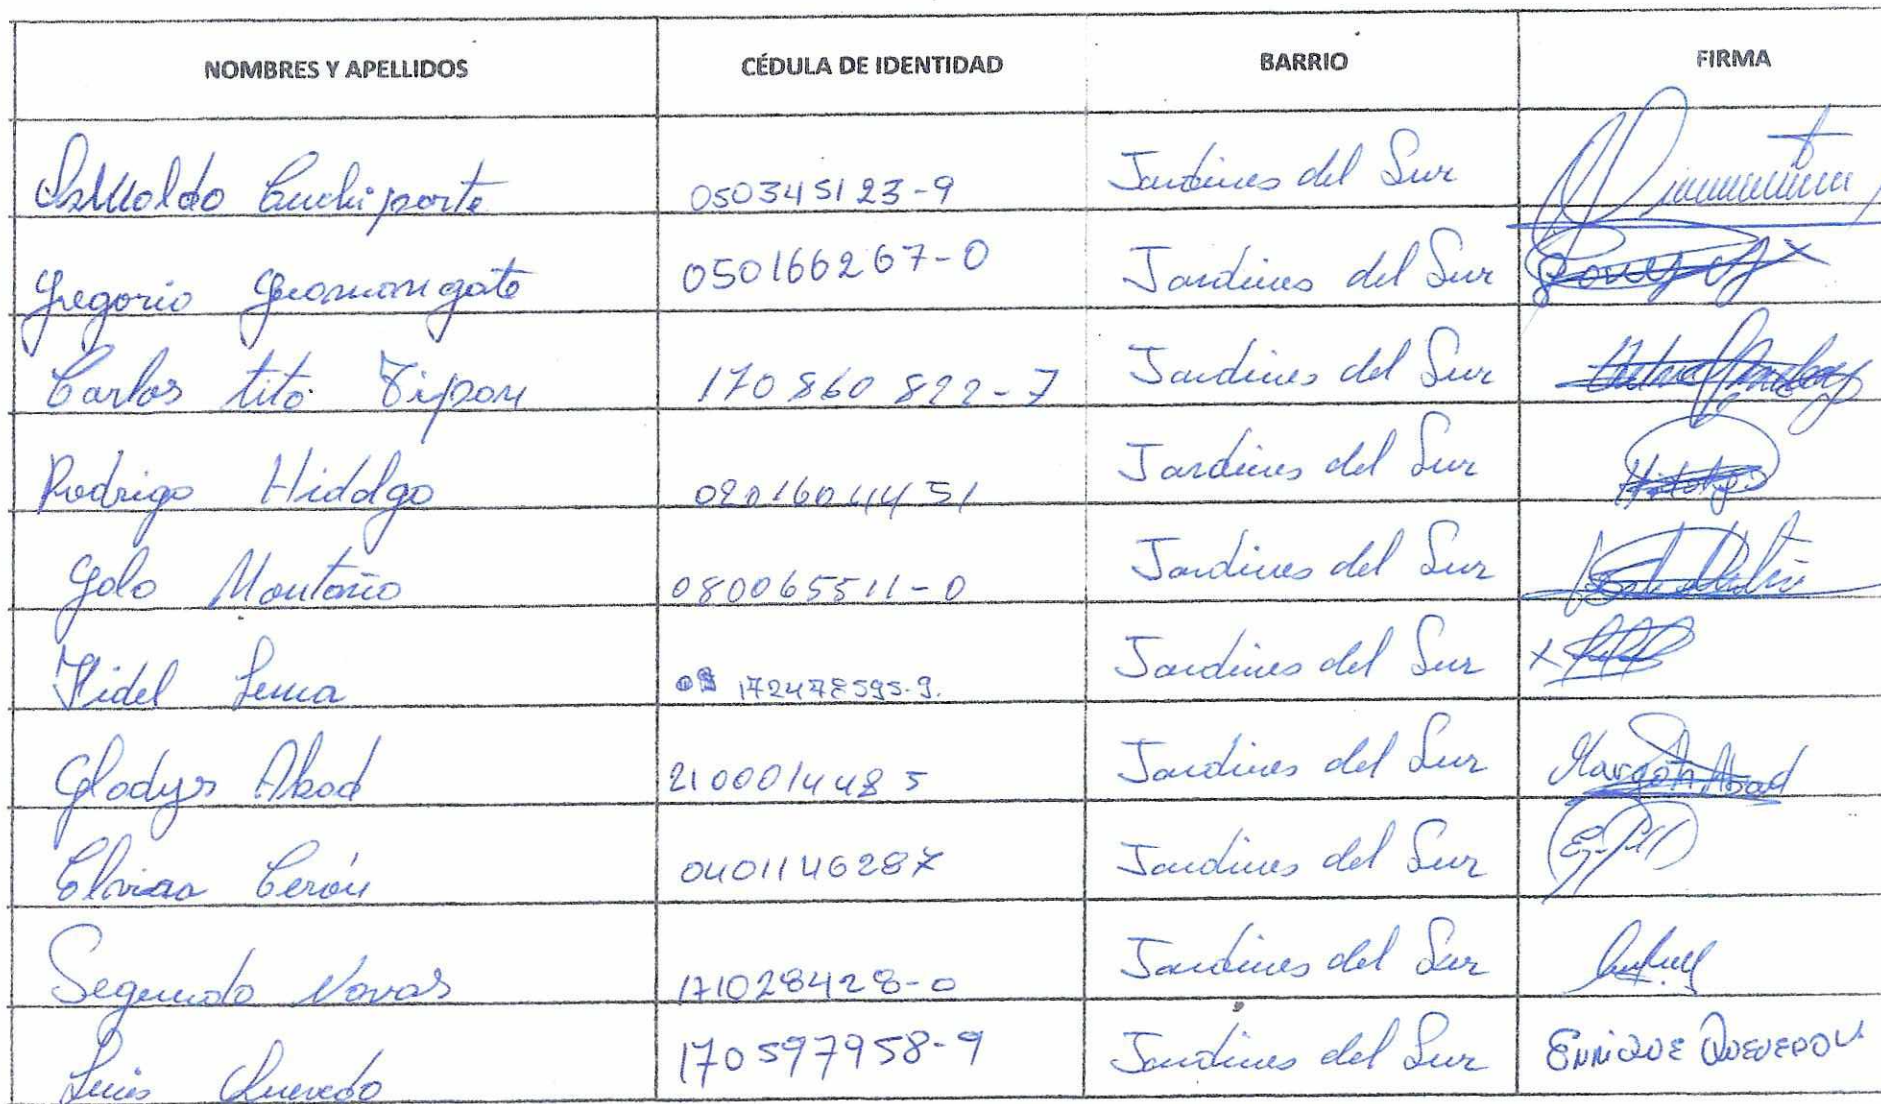 NOMBRES Y APELLIDOS CÉDULA DE IDENTIDAD BARRIO FIRMA
Cuchiparte 050345123-9 Jardines del Sur
Gregorio Guamangate 050166267-0 Jardines del Sur
Carlos tito Tipan 170860822-7 Jardines del Sur
Rodrigo Hidalgo 0201604451 Jardines del Sur Hidalgo
Galo Montaño 080065511-0 Jardines del Sur
Fidel Lema 172478595-9. Jardines del Sur X
Gladys Abad 2100014485 Jardines del Sur Margoth Abad
Elvira Cerón 0401146287 Jardines del Sur
Segundo Navas 171028428-0 Jardines del Sur
Luis Quevedo 170597958-9 Jardines del Sur ENRIQUE QUEVEDO V.